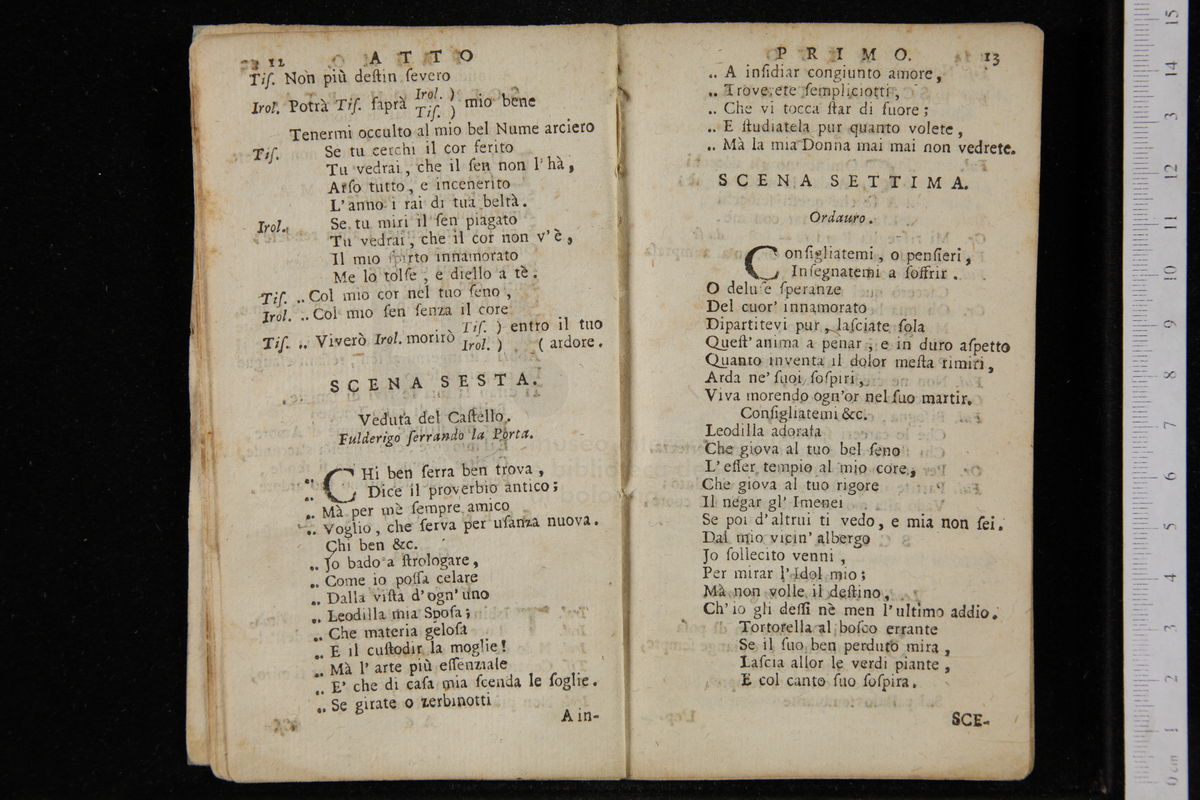 12 ATTO
Tiſ. Non più deſtin ſevero
Irol. Potrà Tiſ. ſaprà Irol. ) Tiſ. ) mio bene
Tenermi occulto al mio bel Nume arciero
Tiſ. Se tu cerchi il cor ferito
Tu vedrai, che il ſen non l'hà,
Arſo tutto, e incenerito
L'anno i rai di tua beltà.
Irol. Se tu miri il ſen piagato
Tu vedrai, che il cor non v'è,
Il mio ſpirto innamorato
Me lo tolſe, e diello a tè.
Tiſ. ,, Col mio cor nel tuo ſeno,
Irol. ,, Col mio ſen ſenza il core
Tiſ. ,, Viverò Irol. morirò Tiſ. ) Irol. ) entro il tuo
( ardore.
SCENA SESTA.
Veduta del Caſtello.
Fulderigo ſerrando la Porta.
,, CHi ben ſerra ben trova,
,, Dice il proverbio antico;
,, Mà per mè ſempre amico
,, Voglio, che ſerva per uſanza nuova.
Chi ben &c.
,, Jo bado a ſtrologare,
,, Come io poſſa celare
,, Dalla viſta d'ogn'uno
,, Leodilla mia Spoſa;
,, Che materia geloſa
,, E il cuſtodir la moglie!
,, Mà l'arte più eſſenziale
,, E' che di caſa mia ſcenda le ſoglie.
,, Se girate o zerbinotti
A in-
PRIMO. 13
,, A inſidiar congiunto amore,
,, Troverete ſempliciotti,
,, Che vi tocca ſtar di fuore;
,, E ſtudiatela pur quanto volete,
,, Mà la mia Donna mai mai non vedrete.
SCENA SETTIMA.
Ordauro.
COnſigliatemi, o penſieri,
Inſegnatemi a ſoffrir.
O deluſe ſperanze
Del cuor' innamorato
Dipartitevi pur, laſciate ſola
Queſt'anima a penar, e in duro aſpetto
Quanto inventa il dolor meſta rimiri,
Arda ne' ſuoi ſoſpiri,
Viva morendo ogn'or nel ſuo martir.
Conſigliatemi &c.
Leodilla adorata
Che giova al tuo bel ſeno
L'eſſer tempio al mio core,
Che giova al tuo rigore
Il negar gl' Imenei
Se poi d'altrui ti vedo, e mia non ſei.
Dal mio vicin' albergo
Jo ſollecito venni,
Per mirar l'Idol mio;
Mà non volle il deſtino,
Ch'io gli deſſi nè men l'ultimo addio.
Tortorella al boſco errante
Se il ſuo ben perduto mira,
Laſcia allor le verdi piante,
E col canto ſuo ſoſpira.
SCE-